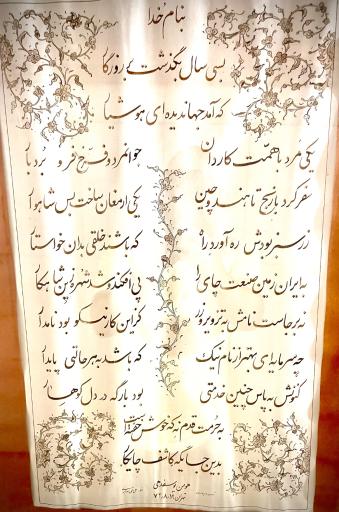 بنام خدا
بسی سال بگذشت بر روزگار
که آمد جهاندیده‌ای هوشیار
یکی مرد با همت کاردان جوانمرد و فرخ فر و بردبار
سفر کرد با رنج تا هند و چین یکی ارمغان ساخت بس شاهوار
ز سر سبز بودش ره آورد راه که باشند خلقی بدان خواستار
به ایران زمین صنعت چای را پی افکند و شد شهره زین شاهکار
نه برجاست نامش نه تزویر و زر کز این کار نیکو بود نامدار
چه سرمایه‌ای بهتر از نام نیک که باشد به هر حالتی پایدار
کنونش به پاس چنین خدمتی بود بارگه در دل کوهسار
به حرمت قدم نه که خوش خفته است
بدین جایگه کاشف چایکار
هومن یوسفدهی
تهران